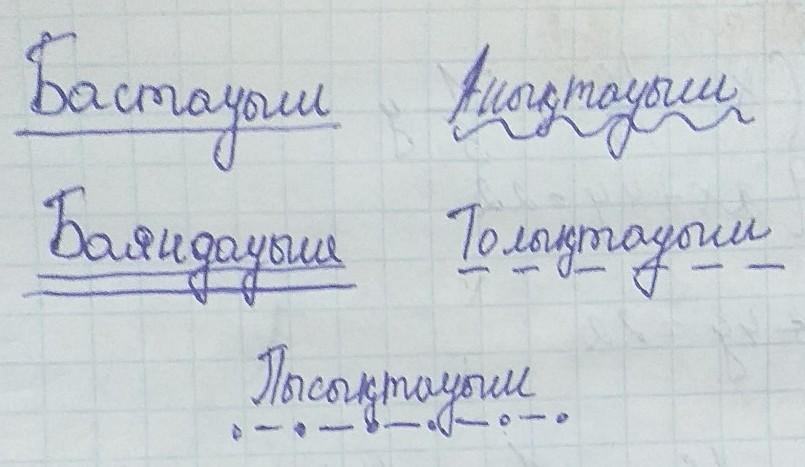 Бастауыш Анықтауыш
Баяндауыш Толықтауыш
Пысықтауыш